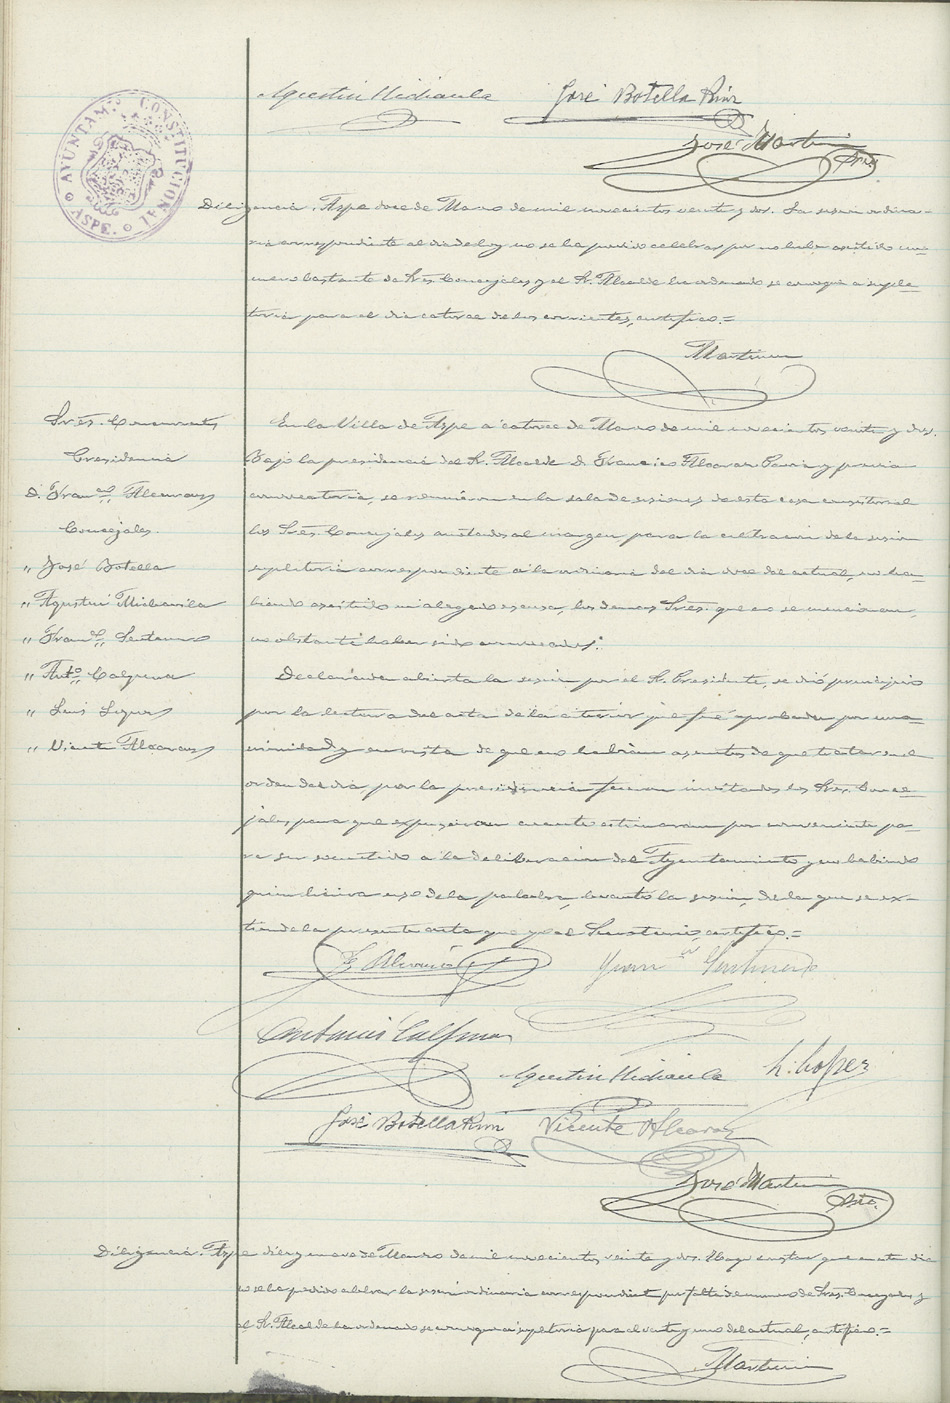 AYUNTAM.º CONSTITUCIONAL
ASPE.
Agustin Michavila José Botella Pina
José Martinez
Srio
Diligencia. Aspe doce de Marzo de mil novecientos veinte y dos. La sesion ordina-
ria correspondiente al dia de hoy no se ha podido celebrar por no haber asistido nu-
mero bastante de Sres. Concejales y el Sr. Alcalde ha ordenado se convoque a suple-
toria para el dia catorce de los corrientes, certifico.=
Martinez
Sres. Concurrentes
Presidencia
D. Franco Alcaraz
Concejales.
" José Botella
" Agustin Michavila
" Franco
" Anto Calpena
" Luis Lopez
" Vicente Alcaraz
En la Villa de Aspe a catorce de Marzo de mil novecientos veinte y dos.
Bajo la presidencia del Sr. Alcalde D. Francisco Alcaraz y previa
convocatoria, se reunieron en la sala de sesiones de esta casa consistorial
los Sres. Concejales anotados al margen para la celebracion de la sesion
supletoria correspondiente a la ordinaria del dia doce del actual, no ha-
biendo asistido ni alegado escusa, los demas Sres. que no se mencionan,
no obstante haber sido convocados.
Declarada abierta la sesion por el Sr. Presidente, se dió principio
por la lectura del acta de la anterior que fué aprobada por una-
nimidad y en vista de que no habian asuntos de que tratar en el
orden del dia por la presidencia fueron invitados los Sres. Conce-
jales para que expusieran cuanto estimaran por conveniente pa-
ra ser sometido a la deliberacion del Ayuntamiento y no habiendo
quien hiciera uso de la palabra, levantó la sesion, de la que se ex-
tiende la presente acta que yo el Secretario, certifico.=
F. Alcaraz
Antonio Calpena
Agustin Michavila L. Lopez
José Botella Pina Vicente Alcaraz
José Martinez
Srio.
Diligencia. Aspe diez y nueve de Marzo de mil novecientos veinte y dos. Hago constar que en este dia
no se ha podido celebrar la sesion ordinaria correspondiente por falta de numero de Sres. Concejales y
el Sr. Alcalde ha ordenado se convoque a supletoria para el veinte y uno del actual, certifico.=
Martinez